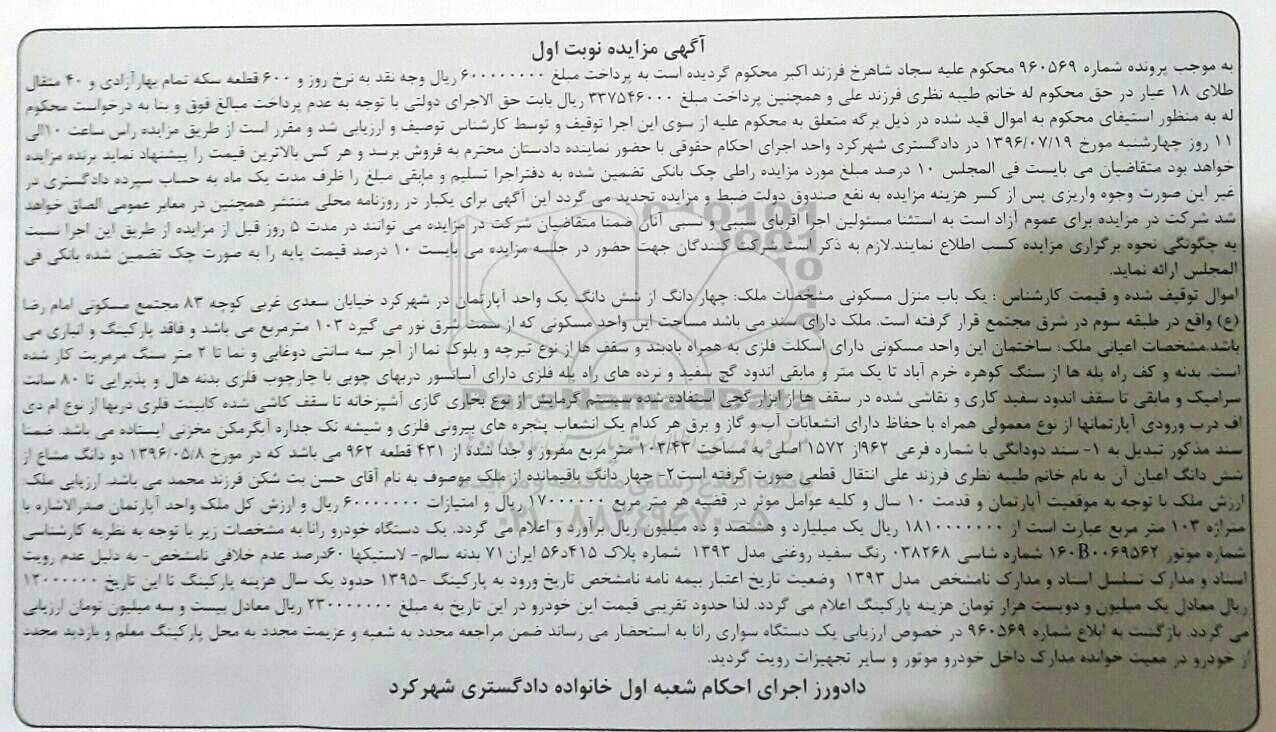 آگهی مزایده نوبت اول
به موجب پرونده شماره ۹۶۰۵۶۹ محکوم علیه سجاد شاهرخ فرزند اکبر محکوم گردیده است به پرداخت مبلغ ۶۰۰۰۰۰۰۰۰ ریال وجه نقد به نرخ روز و ۶۰۰ قطعه سکه تمام بهارآزادی و ۴۰ مثقال
طلای ۱۸ عیار در حق محکوم له خانم طیبه نظری فرزند علی و همچنین پرداخت مبلغ ۳۳۷۵۴۶۰۰۰ ریال بابت حق الاجرای دولتی با توجه به عدم پرداخت مبالغ فوق و بنا به درخواست محکوم
له به منظور استیفای محکوم به اموال قید شده در ذیل برگه متعلق به محکوم علیه از سوی این اجرا توقیف و توسط کارشناس توصیف و ارزیابی شد و مقرر است از طریق مزایده راس ساعت ۱۰الی
۱۱ روز چهارشنبه مورخ ۱۳۹۶/۰۷/۱۹ در دادگستری شهرکرد واحد اجرای احکام حقوقی با حضور نماینده دادستان محترم به فروش برسد و هر کس بالاترین قیمت را پیشنهاد نماید برنده مزایده
خواهد بود متقاضیان می بایست فی المجلس ۱۰ درصد مبلغ مورد مزایده راطی چک بانکی تضمین شده به دفتراجرا تسلیم و مابقی مبلغ را ظرف مدت یک ماه به حساب سپرده دادگستری در
غیر این صورت وجوه واریزی پس از کسر هزینه مزایده به نفع صندوق دولت ضبط و مزایده تجدید می گردد این آگهی برای یکبار در روزنامه محلی منتشر همچنین در معابر عمومی الصاق خواهد
شد شرکت در مزایده برای عموم آزاد است به استثنا مسئولین اجرا اقربای سببی و نسبی آنان ضمنا متقاضیان شرکت در مزایده می توانند در مدت ۵ روز قبل از مزایده از طریق این اجرا نسبت
به چگونگی نحوه برگزاری مزایده کسب اطلاع نمایند.لازم به ذکر است شرکت کنندگان جهت حضور در جلسه مزایده می بایست ۱۰ درصد قیمت پایه را به صورت چک تضمین شده بانکی فی
المجلس ارائه نماید.
اموال توقیف شده و قیمت کارشناس : یک باب منزل مسکونی مشخصات ملک: چهار دانگ از شش دانگ یک واحد آپارتمان در شهرکرد خیابان سعدی غربی کوچه ۸۳ مجتمع مسکونی امام رضا
(ع) واقع در طبقه سوم در شرق مجتمع قرار گرفته است. ملک دارای سند می باشد مساحت این واحد مسکونی که از سمت شرق نور می گیرد ۱۰۳ مترمربع می باشد و فاقد پارکینگ و انباری می
باشد.مشخصات اعیانی ملک: ساختمان این واحد مسکونی دارای اسکلت فلزی به همراه بادبند و سقف ها از نوع تیرچه و بلوک نما از آجر سه سانتی دوغابی و نما تا ۲ متر سنگ مرمریت کار شده
است. بدنه و کف راه پله ها از سنگ کوهره خرم آباد تا یک متر و مابقی اندود گچ سفید و نرده های راه پله فلزی دارای آسانسور دربهای چوبی با چارچوب فلزی بدنه هال و پذیرایی تا ۸۰ سانت
سرامیک و مابقی تا سقف اندود سفید کاری و نقاشی شده در سقف ها از ابزار گچی استفاده شده سیستم گرمایش از نوع بخاری گازی آشپزخانه تا سقف کاشی شده کابینت فلزی دربها از نوع ام دی
اف درب ورودی آپارتمانها از نوع معمولی همراه با حفاظ دارای انشعابات آب و گاز و برق هر کدام یک انشعاب پنجره های بیرونی فلزی و شیشه تک جداره آبگرمکن مخزنی ایستاده می باشد. ضمنا
سند مذکور تبدیل به ۱- سند دودانگی با شماره فرعی ۹۶۲از ۱۵۷۲ اصلی به مساحت ۱۰۲/۴۳ متر مربع مفروز و جدا شده از ۴۳۱ قطعه ۹۶۲ می باشد که در مورخ ۱۳۹۶/۰۵/۸ دو دانگ مشاع از
شش دانگ اعیان آن به نام خانم طیبه نظری فرزند علی انتقال قطعی صورت گرفته است۲- چهار دانگ باقیمانده از ملک موصوف به نام آقای حسن بت شکن فرزند محمد می باشد. ارزیابی ملک:
ارزش ملک با توجه به موقعیت آپارتمان و قدمت ۱۰ سال و کلیه عوامل موثر در قضیه هر متر مربع ۱۷۰۰۰۰۰۰ ریال و امتیازات ۶۰۰۰۰۰۰۰ ریال و ارزش کل ملک واحد آپارتمان صدرالاشاره با
متراژه ۱۰۳ متر مربع عبارت است از ۱۸۱۰۰۰۰۰۰۰ ریال یک میلیارد و هشتصد و ده میلیون ریال برآورد و اعلام می گردد. یک دستگاه خودرو رانا به مشخصات زیر با توجه به نظریه کارشناسی
شماره موتور ۱۶۰B۰۰۶۹۵۶۲ شماره شاسی ۰۳۸۲۶۸ رنگ سفید روغنی مدل ۱۳۹۳ شماره پلاک ۴۱۵د۵۶ ایران۷۱ بدنه سالم- لاستیکها ۶۰درصد عدم خلافی نامشخص- به دلیل عدم رویت
اسناد و مدارک تسلسل اسناد و مدارک نامشخص مدل ۱۳۹۳ وضعیت تاریخ اعتبار بیمه نامه نامشخص تاریخ ورود به پارکینگ ۱۳۹۵- حدود یک سال هزینه پارکینگ تا این تاریخ ۱۲۰۰۰۰۰۰
ریال معادل یک میلیون و دویست هزار تومان هزینه پارکینگ اعلام می گردد. لذا حدود تقریبی قیمت این خودرو در این تاریخ به مبلغ ۲۳۰۰۰۰۰۰۰ ریال معادل بیست و سه میلیون تومان ارزیابی
می گردد. بازگشت به ابلاغ شماره ۹۶۰۵۶۹ در خصوص ارزیابی یک دستگاه سواری رانا به استحضار می رساند ضمن مراجعه مجدد به شعبه و عزیمت مجدد به محل پارکینگ معلم و بازدید مجدد
از خودرو در معیت خوانده مدارک داخل خودرو موتور و سایر تجهیزات رویت گردید.
دادورز اجرای احکام شعبه اول خانواده دادگستری شهرکرد